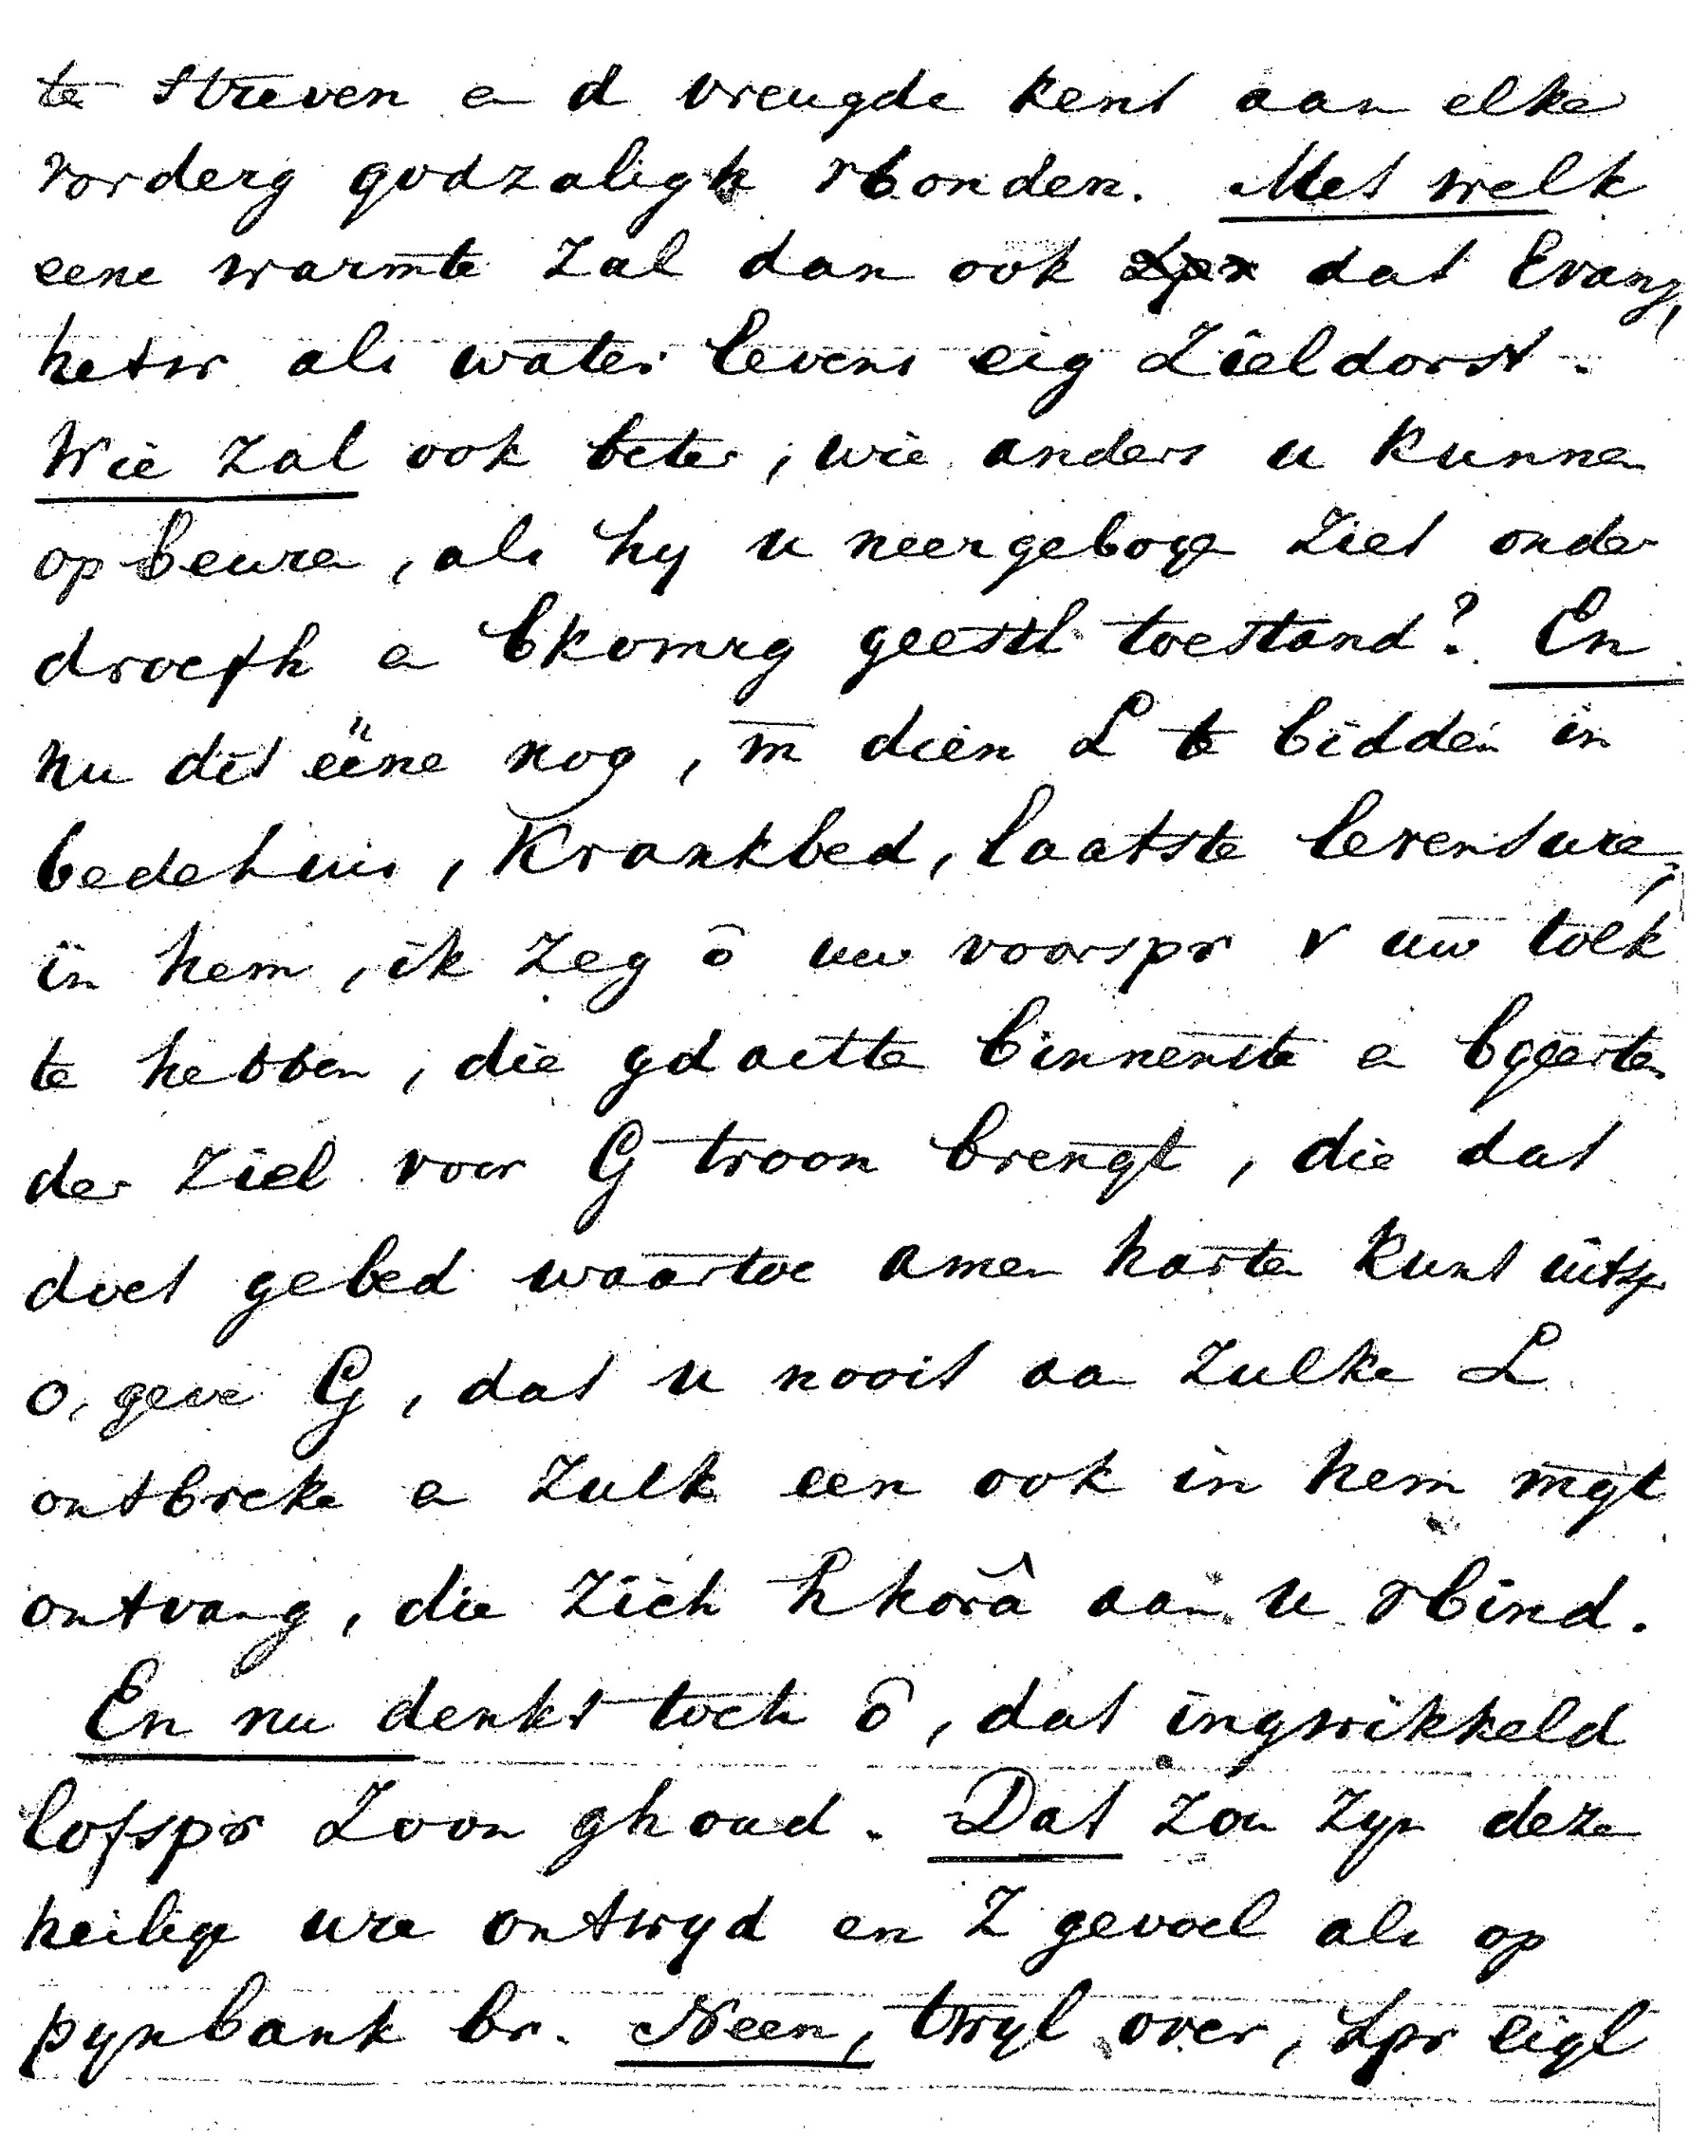 te streven en d vreugde kent aan elke
vorderg godzaligh vbonden. Met welk
eene warmte zal dan ook dat Evang,
hetw als water levens eig zieldorst.
Wie zal ook beter, wie anders u kunnen
opbeuren, als hy u neergebogen ziet onder
droefh en bkomrg geestl toestand? En
nu dit ééne nog, m dien L te bidden in
bedehuis, krankbed, laatste levensure,
in hem, ik zeg ô uw voorspr v uw tolk
te hebben, die gdachte binnenste en bgeerten
der ziel voor G troon brengt, die dat
doet gebed waartoe amen harten kunt uitspr
o, geve G, dat u nooit aan zulke L
ontbreke en zulk een ook in hem mgt
ontvang, die zich hkorâ aan u vbind.
En nu denkt toch ô, dat ingwikkeld
lofspr Zoon ghoud. Dat zou zyn deze
heilige ure ontwyd en Z gevoel als op
pynbank br. Neen, twyl over, spr eigl